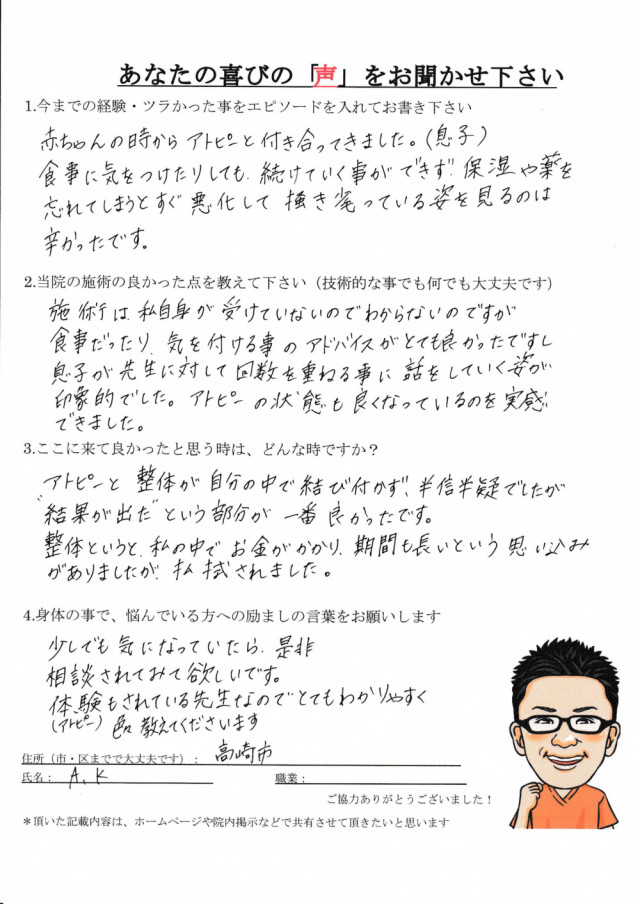 あなたの喜びの「声」をお聞かせ下さい
1.今までの経験・ツラかった事をエピソードを入れてお書き下さい
赤ちゃんの時から アトピーと付き合ってきました。(息子)
食事に気をつけたりしても、続けていく事ができず、保湿や薬を
忘れてしまうとすぐ悪化して 掻き毟っている姿を見るのは
辛かったです。
2.当院の施術の良かった点を教えて下さい（技術的な事でも何でも大丈夫です）
施術は、私自身が受けていないのでわからないのですが
食事だったり、気を付ける事のアドバイスがとても良かったですし
息子が先生に対して回数を重ねる事に 話をしていく姿が
印象的でした。アトピーの状態も良くなっているのを実感
できました。
3.ここに来て良かったと思う時は、どんな時ですか？
アトピーと 整体が自分の中で結び付かず、半信半疑でしたが
"結果が出た"という部分が 一番良かったです。
整体というと、私の中でお金がかかり、期間も長いという思い込み
がありましたが、払拭されました。
4.身体の事で、悩んでいる方への励ましの言葉をお願いします
少しでも気になっていたら、是非
相談されてみて欲しいです。
体験もされている先生なのでとてもわかりやすく
(アトピー) 色々教えてくださいます
住所（市・区までで大丈夫です）： 高崎市
氏名： A.K 職業：
ご協力ありがとうございました！
＊頂いた記載内容は、ホームページや院内掲示などで共有させて頂きたいと思います